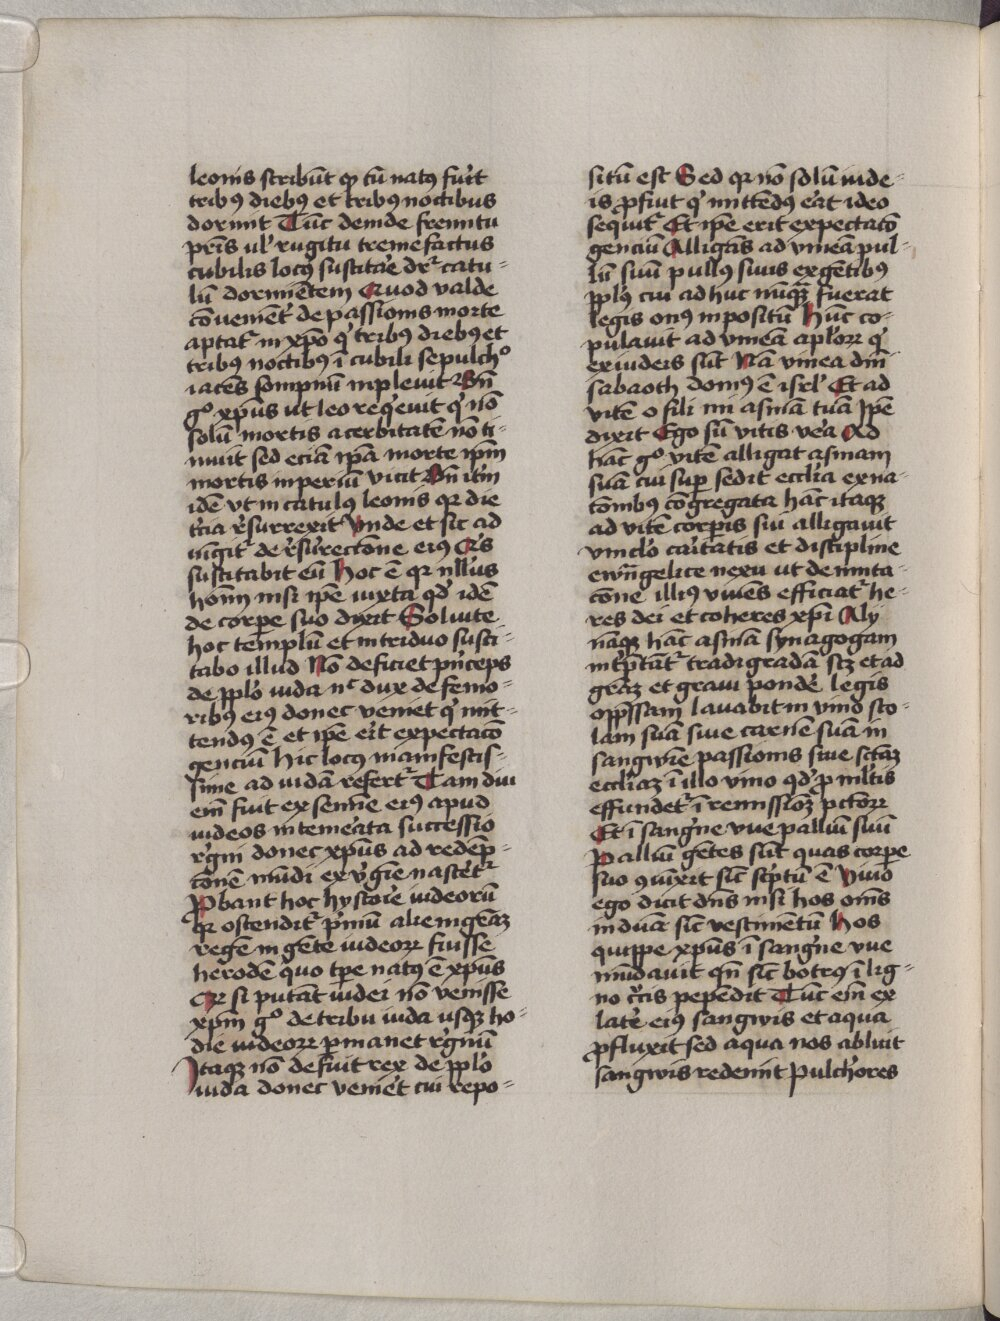 leonis scribūt qꝫ cū natꝰ fuīt
tribꝰ diebꝰ et tribꝰ noctibus
dormit Tūc deinde fremitu
pr̄is ul' rugitu tremefactus
cubilis locꝰ suscitāe dr̄ catu-
lū dormiētem Quod valde
cōuenient̄ de passionis morte
aptat̄ in xp̄o qͥ tribꝰ diebꝰ et
tribꝰ noctibꝰ ī cubili sepulchͦ
iacēs sompnū inpleuit Bn̄
gͦ xp̄us ut leo reqͥeuit qͥ nō
solū mortis acerbitatē nō ti-
muit sed eciā ip̄a morte ip̄m
mortis inperiū vicit Bn̄ it̄m
idē vt in catulus leonis qꝛ die
t̄cia r̄surrexit Vnde et sic ad
iūgit̄ de r̄surectōne eiꝰ Qͥs
suscitabit eū Hoc ē qꝛ nll'us
hom̄ nisi ip̄e iuxta qd' idē
de corꝑe suo dixit Soluite
hoc templū et in triduo susci-
tabo illud Nō deficiet pͥnceps
de ppl'o iuda nͨ dux de femo-
ribꝰ eiꝰ donec veniet qͥ mit-
tendꝰ ē et ip̄e er̄t expectacō
genciū hic locꝰ manifestis-
sime ad iudā refert̄ Tam diu
em̄ fuit ex semīe eiꝰ apud
iudeos intemērata successio
r̄gni donec xp̄us ad redēp-
cōnē mūdi ex v̄gīe nascēt̄
Ꝓbant hoc hystorīe iudeorū
qꝛ ostendit̄ pͥmū alienigēāꝫ
regē in gēte iudeoꝝ fuisse
herodē quo tp̄e natꝰ ē xp̄us
Qꝛ si putāt iudei nō venisse
xp̄m gͦ de tribu iuda usqꝫ ho-
die iudeoꝝ ꝑmanet r̄gnū
Itaqꝫ nō defuit rex de ppl'o
iuda donec veniēt cui repo-
sitū est Sed qꝛ nō solū iude-
is ꝓfuit qͥ mittēdꝰ eāt ideo
sequit̄ Et ip̄e erit expectacō
genciū Alligās ad vineā pul-
lū suū pullꝰ suus ex gētibꝰ
ppl'ꝰ cui ad huc nūqꝫ fuerat
legis onꝰ inpositū Hūc co-
pulauit ad vineā apl'oꝝ qͥ
ex iudeis sūt Nā vinea dn̄i
sabaoth domꝰ ē isrl' Et ad
vitē o fili mi asinā tuā Ip̄e
dixit Ego sū vitis veā Ad
hāc gͦ vitē alligat asinam
suā cui suꝑ sedit ecclīa ex na-
cōnibus cōgregata hāc itaqꝫ
ad vitē corꝑis sui alligauit
vincl'o cāritatis et discipline
ewn̄gelice nexu ut de imita-
cōne illiꝰ viuēs efficiat̄ he-
res dei et coheres xp̄i Alij
nāqꝫ hāc asinā synagogam
int̄p̄tāt̄ tradigradā scꝫ et ad
grāꝫ et graui pondē legis
opp̄ssam lauabit in vino sto-
lam suā siue carnē suā in
sangwīe passionis siue sc̄tāꝫ
eccl'iaꝫ ī illo vino qd' ꝓ ml'tis
effundet̄ ī remissiōꝫ pctoꝝ
Et ī sangͥne vue palliū suū
Palliū gētes sūt quas corꝑe
suo ꝯiūxit sic̄ scͥptū ē Viuo
ego dicit dn̄s nisi hos om̄s
induā sic̄ vestimētū Hos
quippe xp̄us ī sangͥne vue
mūdauit qn̄ sic̄ botrꝰ ī lig-
no crͨis pepēdit Tūc em̄ ex
latē eiꝰ sangwis et aqua
ꝓfluxit sed aqua nos abluit
sangwis redemit Pulchōres